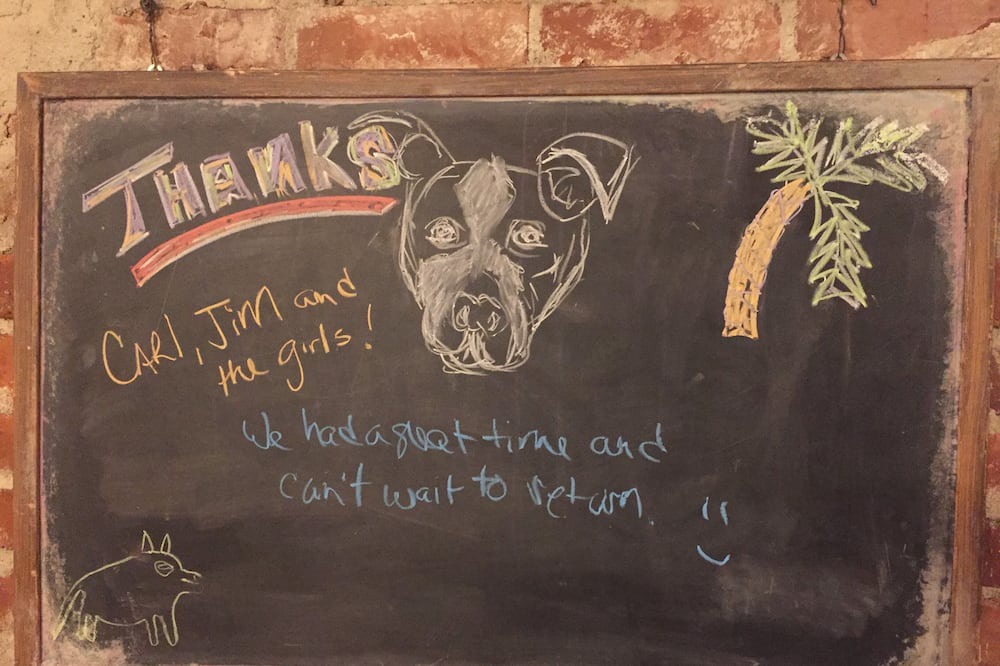 THANKS
CARl, Jim and
the girls!
We had a great time and
can't wait to return.